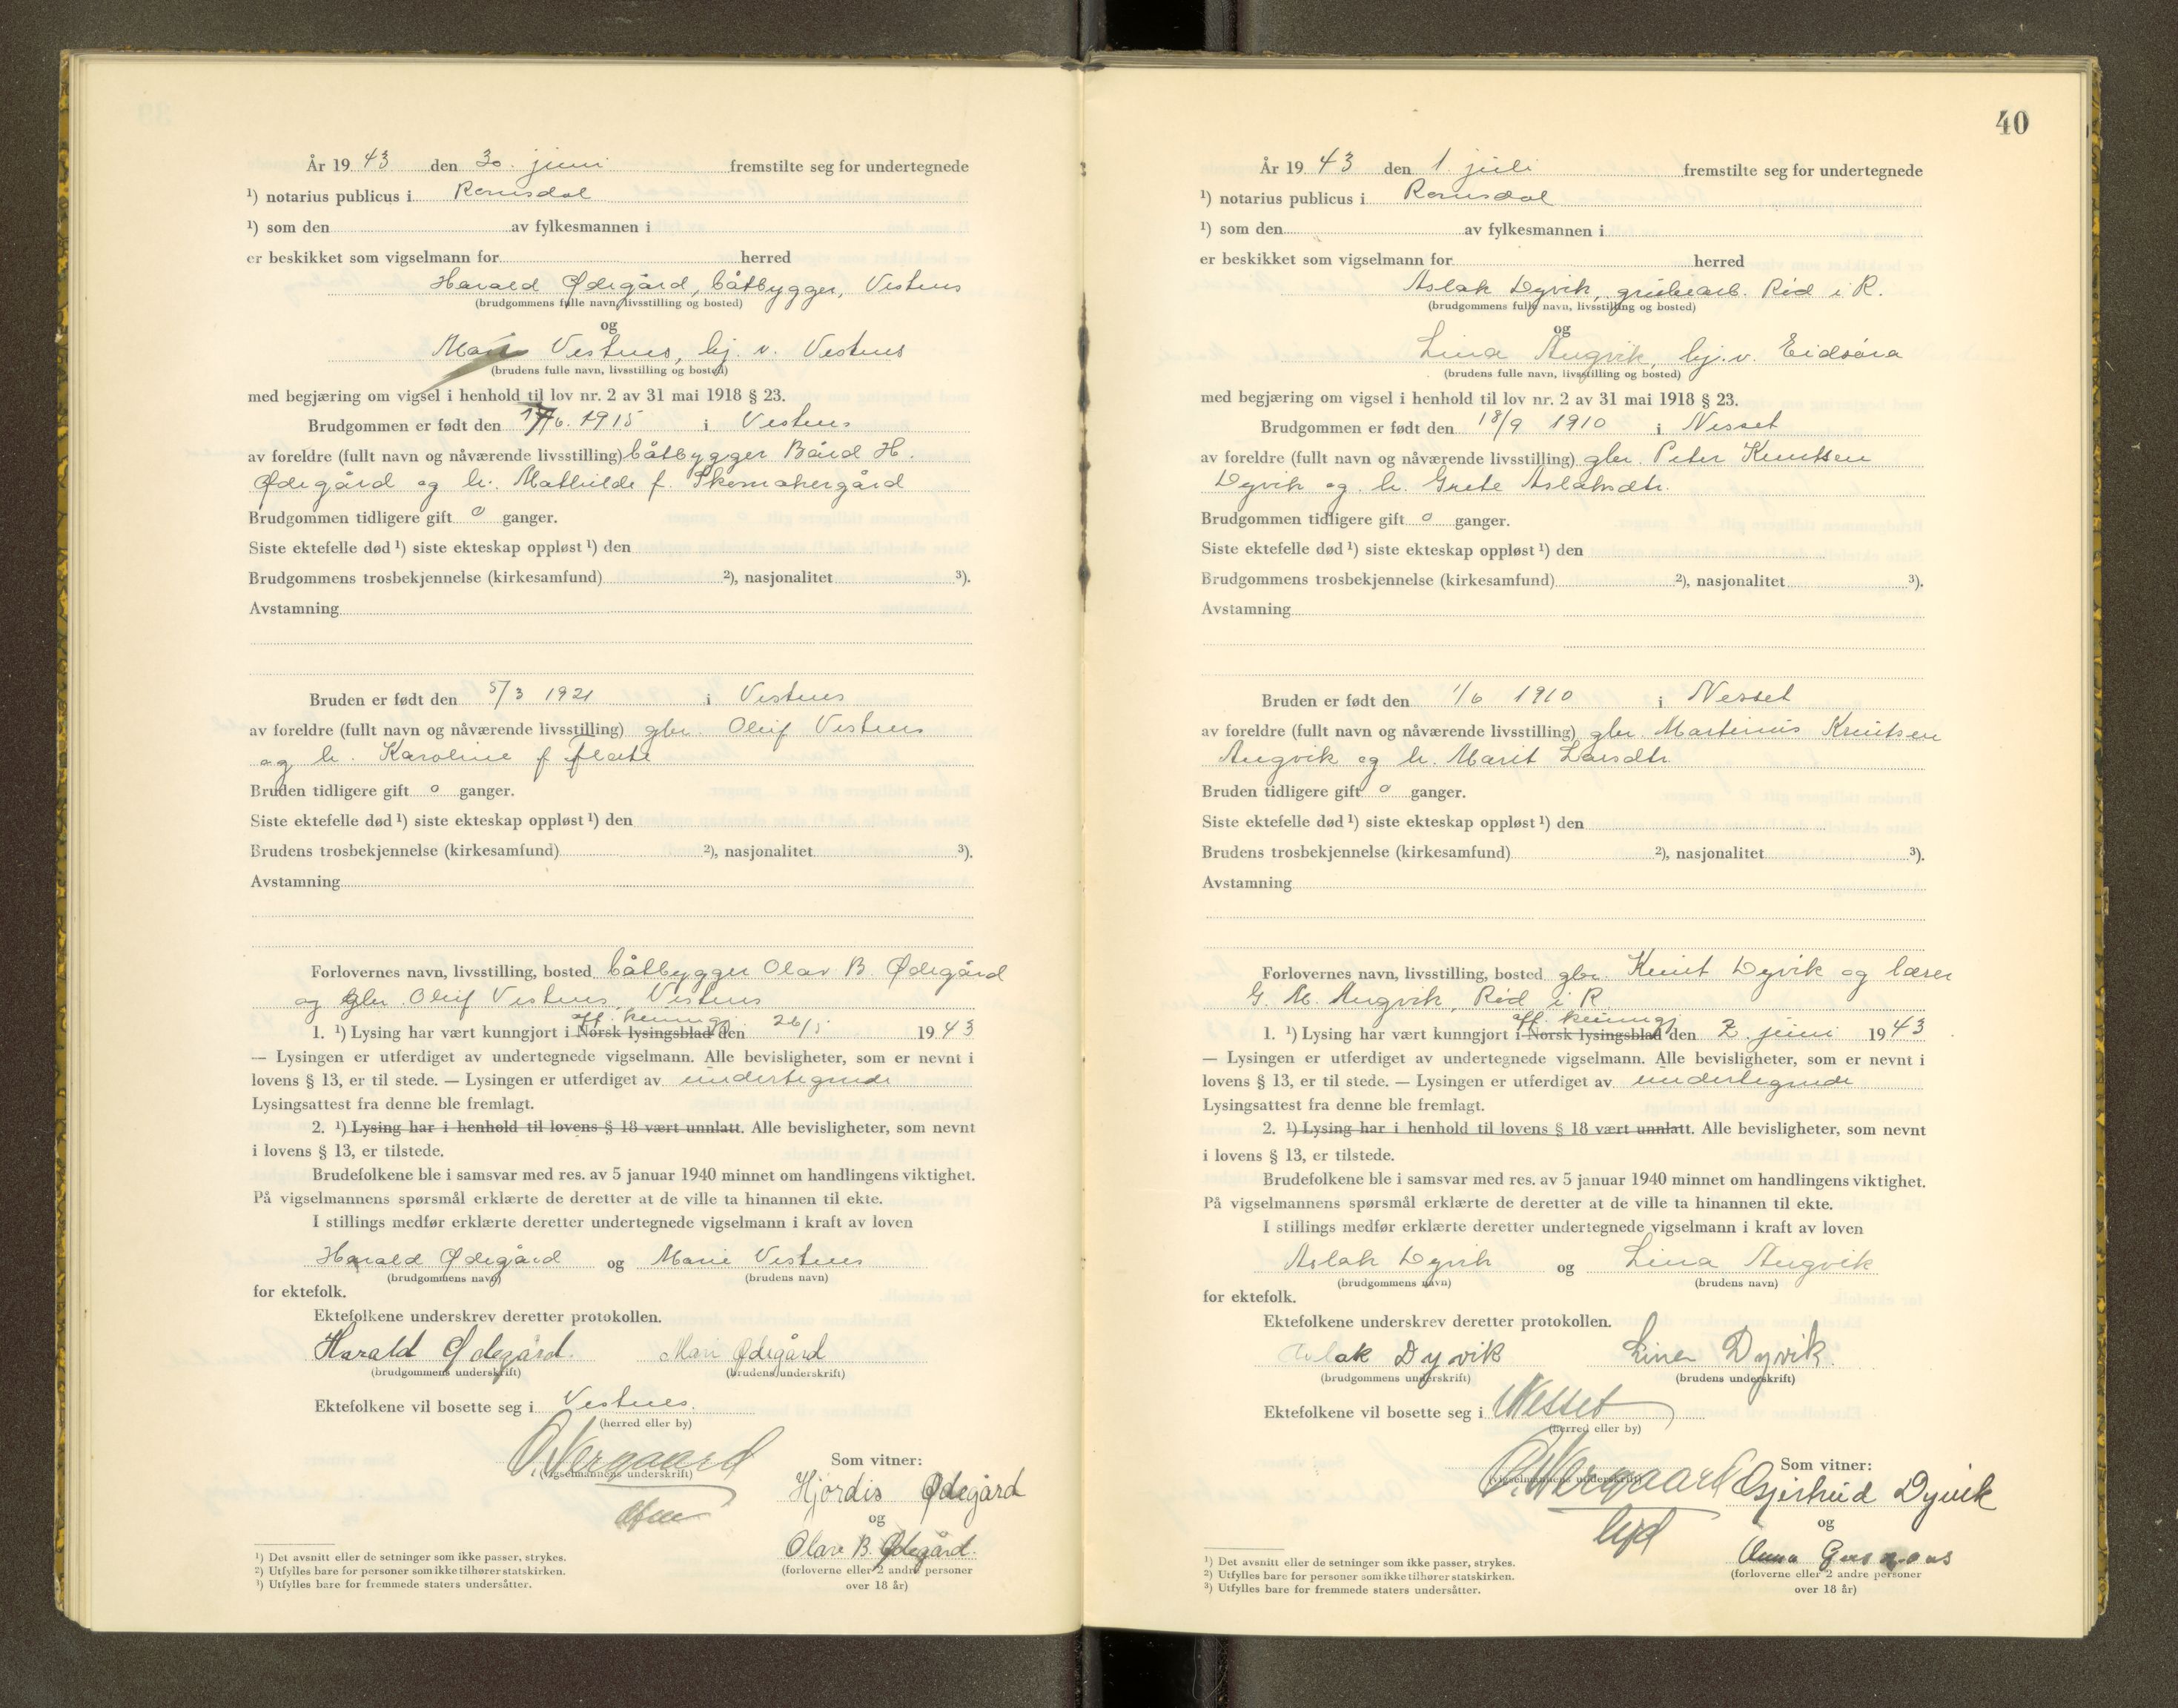 År 1943 den 30. juni fremstilte seg for undertegnede
¹) notarius publicus i Romsdal
¹) som den av fylkesmannen i
er beskikket som vigselmann for herred
Harald Ødegård, båtbygger, Vestnes
(brudgommens fulle navn, livsstilling og bosted)
og
Mari Vestnes, hj. v. Vestnes
(brudens fulle navn, livsstilling og bosted)
med begjæring om vigsel i henhold til lov nr. 2 av 31 mai 1918 § 23.
Brudgommen er født den 6. 1915 i Vestnes
av foreldre (fullt navn og nåværende livsstilling) båtbygger Bård H.
Ødegård og h. Mathilde f. Skomakergård
Brudgommen tidligere gift 0 ganger.
Siste ektefelle død ¹) siste ekteskap oppløst ¹) den
Brudgommens trosbekjennelse (kirkesamfund) ²), nasjonalitet ³).
Avstamning
Bruden er født den 5/3 1921 i Vestnes
av foreldre (fullt navn og nåværende livsstilling) gbr. Oluf Vestnes
og h. Karoline f. Flate
Bruden tidligere gift 0 ganger.
Siste ektefelle død ¹) siste ekteskap oppløst ¹) den
Brudens trosbekjennelse (kirkesamfund) ²), nasjonalitet ³).
Avstamning
Forlovernes navn, livsstilling, bosted båtbygger Olav B. Ødegård
og gbr. Oluf Vestnes, Vestnes
off. kunngj.
1. ¹) Lysing har vært kunngjort i Norsk lysingsblad den 26/5 1943
— Lysingen er utferdiget av undertegnede vigselmann. Alle bevisligheter, som er nevnt i
lovens § 13, er til stede. — Lysingen er utferdiget av undertegnede
Lysingsattest fra denne ble fremlagt.
2. ¹) Lysing har i henhold til lovens § 18 vært unnlatt. Alle bevisligheter, som nevnt
i lovens § 13, er tilstede.
Brudefolkene ble i samsvar med res. av 5 januar 1940 minnet om handlingens viktighet.
På vigselmannens spørsmål erklærte de deretter at de ville ta hinannen til ekte.
I stillings medfør erklærte deretter undertegnede vigselmann i kraft av loven
Harald Ødegård og Marie Vestnes
(brudgommens navn) (brudens navn)
for ektefolk.
Ektefolkene underskrev deretter protokollen.
Harald Ødegård. Mari Ødegård
(brudgommens underskrift) (brudens underskrift)
Ektefolkene vil bosette seg i Vestnes.
(herred eller by)
O. Nergaard
(vigselmannens underskrift)
Som vitner:
Hjördis Ødegård
og
Olav B. Ødegård.
(forloverne eller 2 andre personer
over 18 år)
¹) Det avsnitt eller de setninger som ikke passer, strykes.
²) Utfylles bare for personer som ikke tilhører statskirken.
³) Utfylles bare for fremmede staters undersåtter.
40
År 1943 den 1. juli fremstilte seg for undertegnede
¹) notarius publicus i Romsdal
¹) som den av fylkesmannen i
er beskikket som vigselmann for herred
Aslak Dyvik, grubearb. Rød i R.
(brudgommens fulle navn, livsstilling og bosted)
og
Lina Angvik, hj. v. Eidsøra
(brudens fulle navn, livsstilling og bosted)
med begjæring om vigsel i henhold til lov nr. 2 av 31 mai 1918 § 23.
Brudgommen er født den 18/9 1910 i Nesset
av foreldre (fullt navn og nåværende livsstilling) gbr. Peter Knutsen
Dyvik og h. Grete Aslaksdtr.
Brudgommen tidligere gift 0 ganger.
Siste ektefelle død ¹) siste ekteskap oppløst ¹) den
Brudgommens trosbekjennelse (kirkesamfund) ²), nasjonalitet ³).
Avstamning
Bruden er født den 1/6 1910 i Nesset
av foreldre (fullt navn og nåværende livsstilling) gbr. Martinus Knutsen
Angvik og h. Marit Larsdtr.
Bruden tidligere gift 0 ganger.
Siste ektefelle død ¹) siste ekteskap oppløst ¹) den
Brudens trosbekjennelse (kirkesamfund) ²), nasjonalitet ³).
Avstamning
Forlovernes navn, livsstilling, bosted gbr. Knut Dyvik og lærer
G. M. Angvik, Rød i R.
off. kunngj.
1. ¹) Lysing har vært kunngjort i Norsk lysingsblad den 2. juni 1943
— Lysingen er utferdiget av undertegnede vigselmann. Alle bevisligheter, som er nevnt i
lovens § 13, er til stede. — Lysingen er utferdiget av undertegnede
Lysingsattest fra denne ble fremlagt.
2. ¹) Lysing har i henhold til lovens § 18 vært unnlatt. Alle bevisligheter, som nevnt
i lovens § 13, er tilstede.
Brudefolkene ble i samsvar med res. av 5 januar 1940 minnet om handlingens viktighet.
På vigselmannens spørsmål erklærte de deretter at de ville ta hinannen til ekte.
I stillings medfør erklærte deretter undertegnede vigselmann i kraft av loven
Aslak Dyvik og Lina Angvik
(brudgommens navn) (brudens navn)
for ektefolk.
Ektefolkene underskrev deretter protokollen.
Aslak Dyvik Lina Dyvik.
(brudgommens underskrift) (brudens underskrift)
Ektefolkene vil bosette seg i Nesset
(herred eller by)
O. Nergaard
(vigselmannens underskrift)
Som vitner:
Gjertrud Dyvik
og
Anna
(forloverne eller 2 andre personer
over 18 år)
¹) Det avsnitt eller de setninger som ikke passer, strykes.
²) Utfylles bare for personer som ikke tilhører statskirken.
³) Utfylles bare for fremmede staters undersåtter.